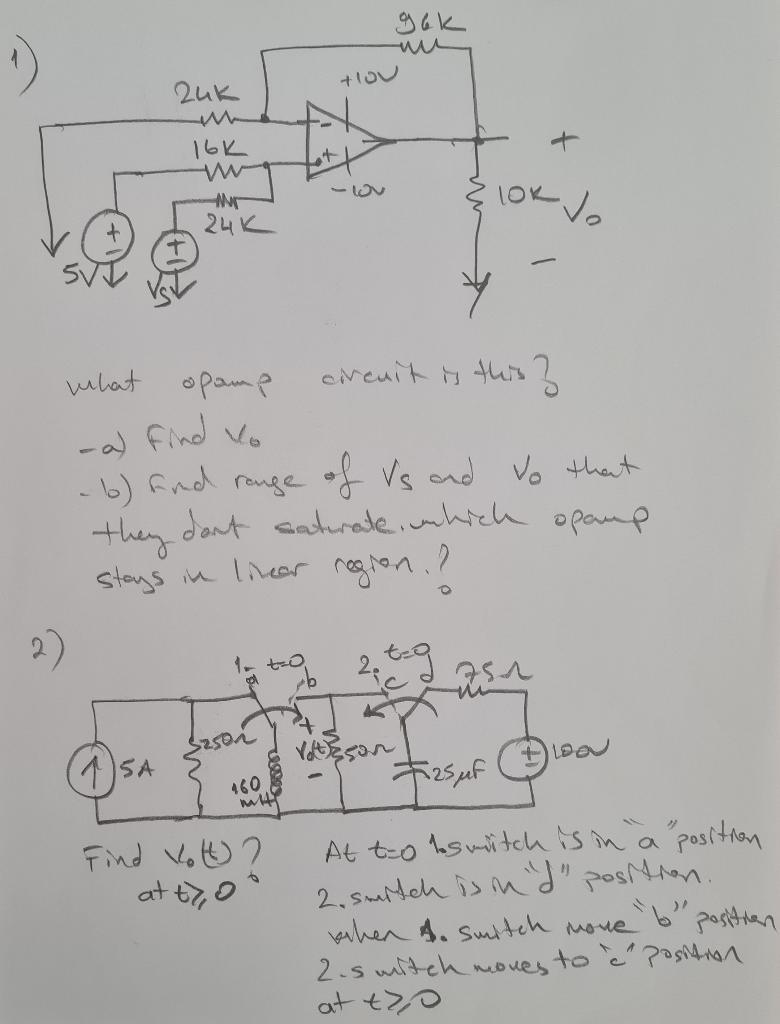 1)
96K
24K
+10V
16K
-10V
24K
10K
+
Vo
-
5V
Vs
what opamp circuit is this?
-a) Find Vo
-b) Find range of Vs and Vo that
they dont saturate. which opamp
stays in linear region.?
2)
1. t=0
a
b
2. t=0
c
d
75Ω
5A
250Ω
160
mH
+
Vo(t)
-
50Ω
25μF
100V
Find Vo(t)?
at t≥0
At t=0 1.switch is in "a" position
2. switch is in "d" position.
when 1. switch move "b" position
2. switch moves to "c" position
at t≥0